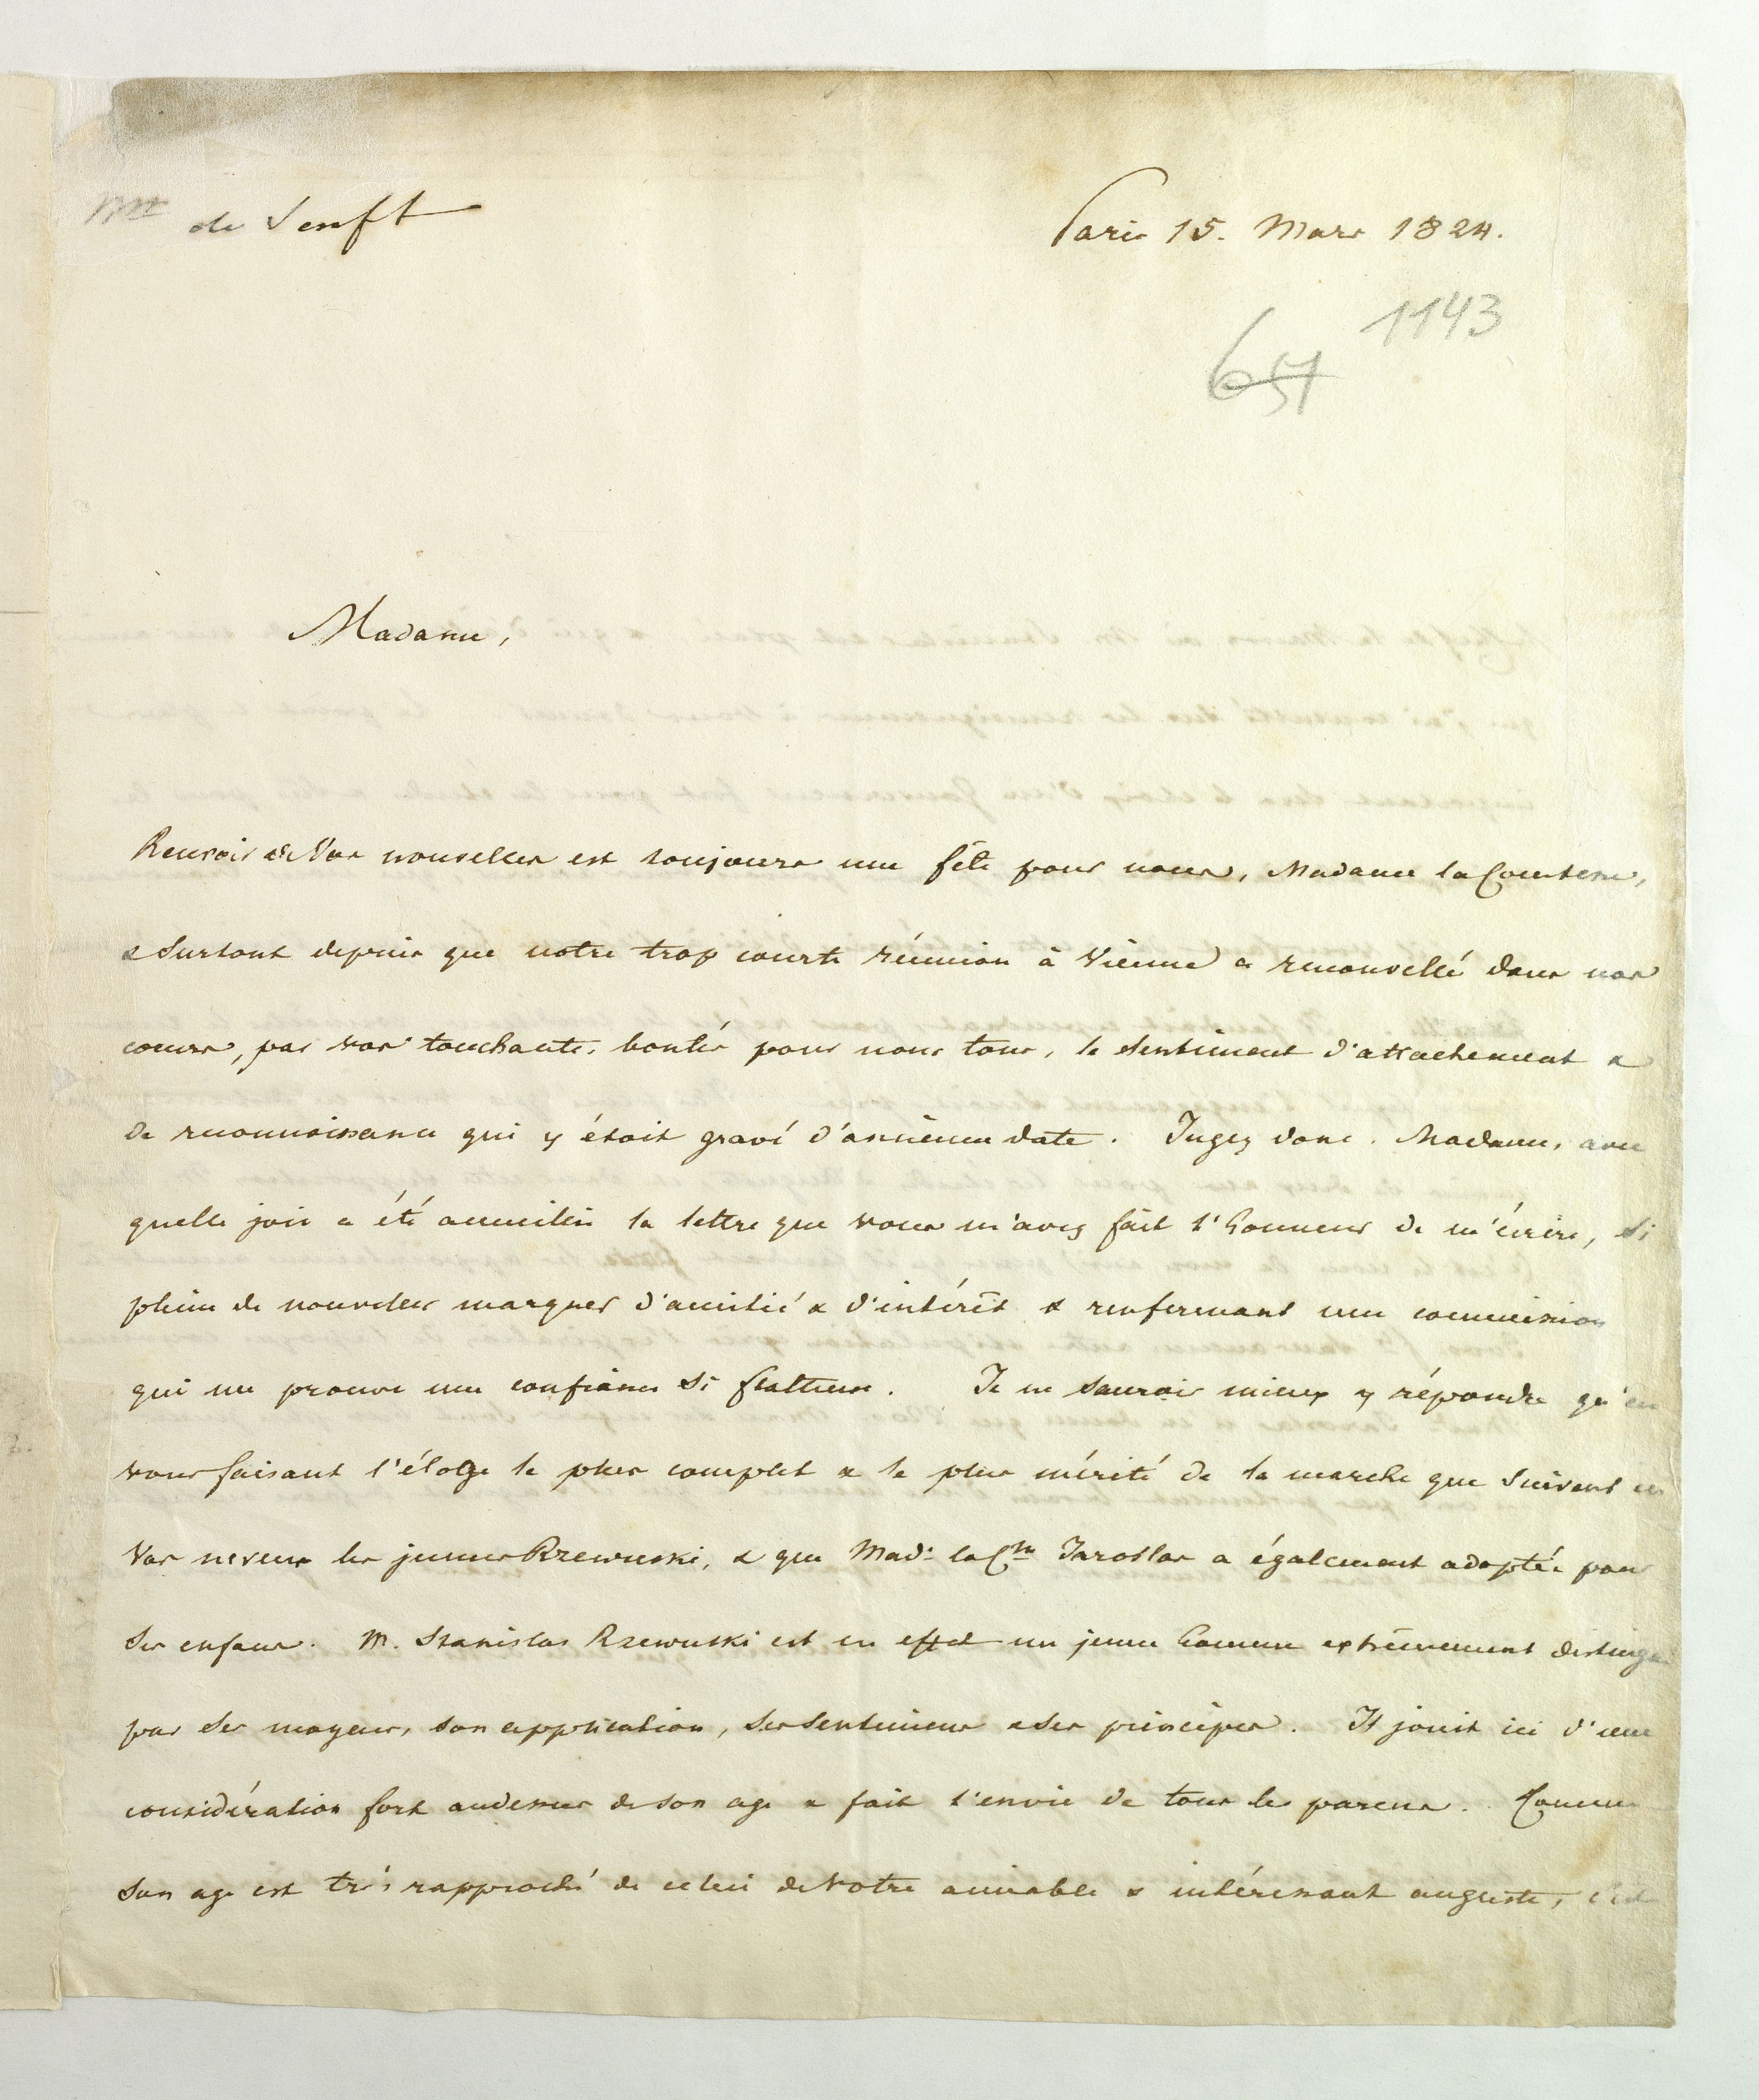 Mr de Senft
Paris 15. Mars 1824.
1143
657
Madame,
Recevoir de Vos nouvelles est toujours une fête pour nous, Madame la Comtesse,
& surtout depuis que notre trop courte réunion à Vienne a renouvellé dans nos
coeurs, par vos touchantes bontés pour nous tous, le sentiment d'attachement &
de reconnoissance qui y étoit gravé d'ancienne date. Jugez donc, Madame, avec
quelle joie a été accueillie la lettre que vous m'avez fait l'honneur de m'écrire, si
pleine de nouvelles marques d'amitié & d'intérêt & renfermant une commission
qui me prouve une confiance si flatteuse. Je ne saurois mieux y répondre qu'en
vous faisant l'éloge le plus complet & le plus mérité de la marche que suivent ici
Vos neveux les jeunes Rzewuski, & que Mad: la Csse Jaroslas a également adoptée pour
ses enfans. M. Stanislas Rzewuski est en effet un jeune homme extrêmement distingué
par ses moyens, son application, ses sentimens & ses principes. Il jouit ici d'une
considération fort audessus de son age & fait l'envie de tous les parens. Comme
son age est très rapproché de celui de Votre aimable & intéressant auguste, c'est